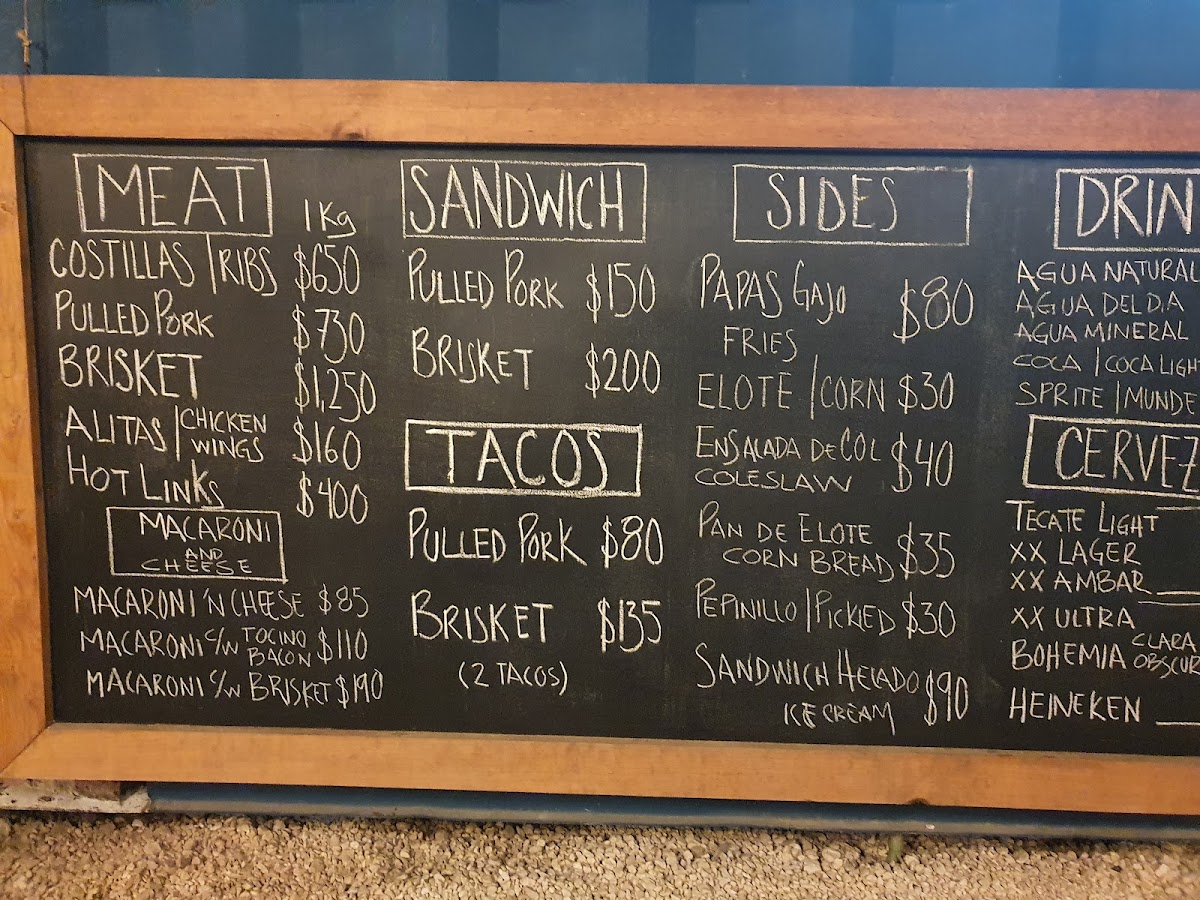 MEAT
1Kg
COSTILLAS / RIBS $650
PULLED PORK $730
BRISKET $1,250
ALITAS / CHICKEN WINGS $160
HOT LINKS $400
MACARONI
AND
CHEESE
MACARONI 'N CHEESE $85
MACARONI C/W TOCINO BACON $110
MACARONI C/W BRISKET $190
SANDWICH
PULLED PORK $150
BRISKET $200
TACOS
PULLED PORK $80
BRISKET $135
(2 TACOS)
SIDES
PAPAS GAJO $80
FRIES
ELOTE / CORN $30
ENSALADA DE COL $40
COLESLAW
PAN DE ELOTE $35
CORN BREAD
PEPINILLO / PICKIED $30
SANDWICH HELADO $90
ICE CREAM
DRIN
AGUA NATURAL
AGUA DEL DIA
AGUA MINERAL
COCA / COCA LIGHT
SPRITE / MUNDE
CERVEZ
TECATE LIGHT
XX LAGER
XX AMBAR
XX ULTRA
BOHEMIA CLARA OBSCUR
HEINEKEN